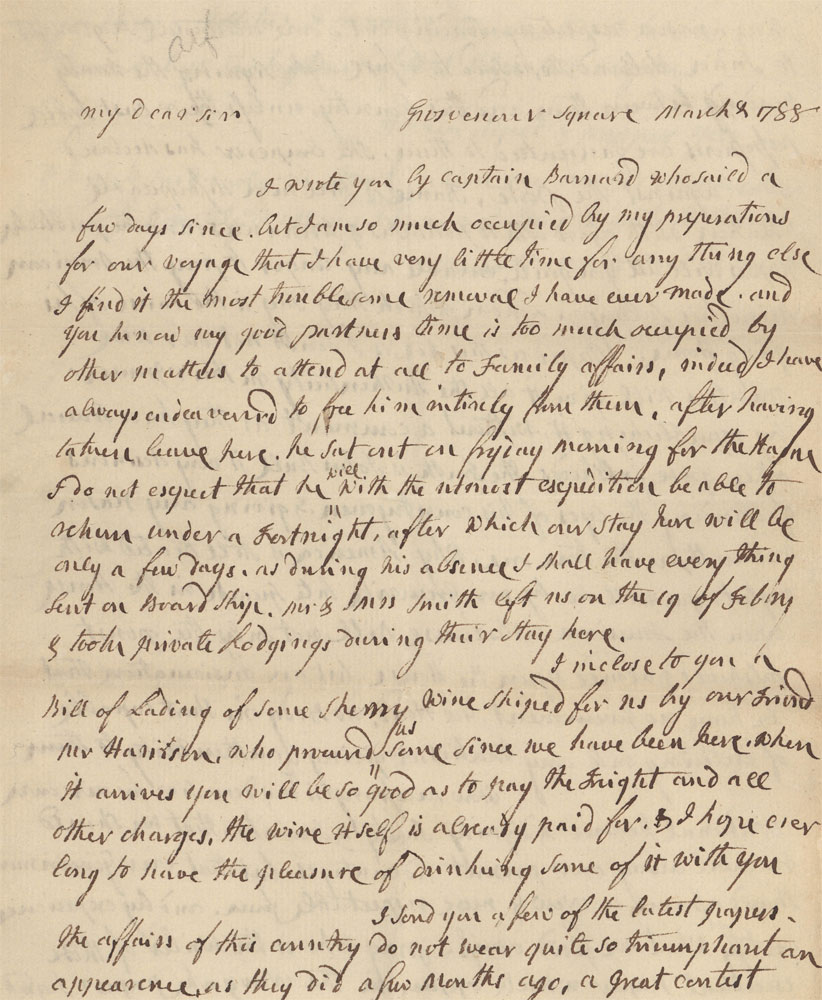 my dear sir Grosvenour Square March 8 1788
I wrote you by captain Barnard who saild a
few days since. but I am so much occupied by my preperations
for our voyage that I have very little time for any thing else
I find it the most troublesome removal I have ever made. and
you know my good partners time is too much occupied by
other matters to attend at all to Family affairs, indeed I have
always endeavourd to free him intirely from them, after having
taken leave here. he sat out on fryday morning for the Hague
I do not expect that he will with the utmost expedition be able to
return under a Fortnight, after which our stay here will be
only a few days. as during his absence I shall have every thing
sent on Board Ship. mr & mrs Smith left us on the 19 of Febry
& took private Lodgings during their stay here.
I inclose to you a
Bill of Lading of some Sherry wine shiped for us by our Friend
mr Harrison, who procured us some since we have been here. when
it arrives you will be so good as to pay the Fright and all
other charges, the wine itself is already paid for. & I hope ever
long to have the pleasure of drinking some of it with you
I send you a few of the latest papers.
the affairs of this country do not wear quite so triumphant an
appearence, as they did a few months ago, a great contest